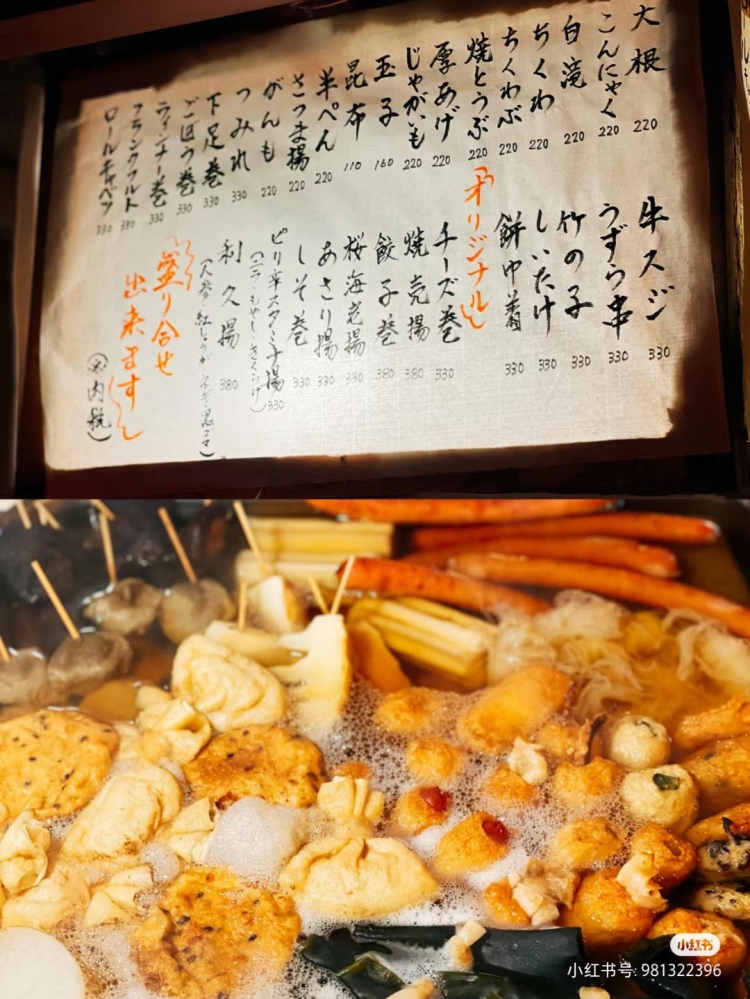 大根 220
こんにゃく 220
白滝 220
ちくわ 220
ちくわぶ 220
焼とうふ 220
厚あげ 220
じゃがいも 220
玉子 160
昆布 110
半ぺん 220
さつま揚 220
がんも 220
つみれ 330
下足巻 330
ごぼう巻 330
ウィンナー巻 330
フランクフルト 330
ロールキャベツ 330
牛スジ 330
うずら串 330
竹の子 330
しいたけ 330
餅巾着 330
『オリジナル』
チーズ巻 330
焼売揚 380
餃子巻 380
桜海老揚 330
あさり揚 330
しそ巻 330
ピリ辛スタミナ揚 330
(ニラ・もやし・きくらげ)
利久揚 380
(人参・紅しょうが・ネギ・黒ごま)
盛り合せ
出来ます
小红书
小红书号: 981322396